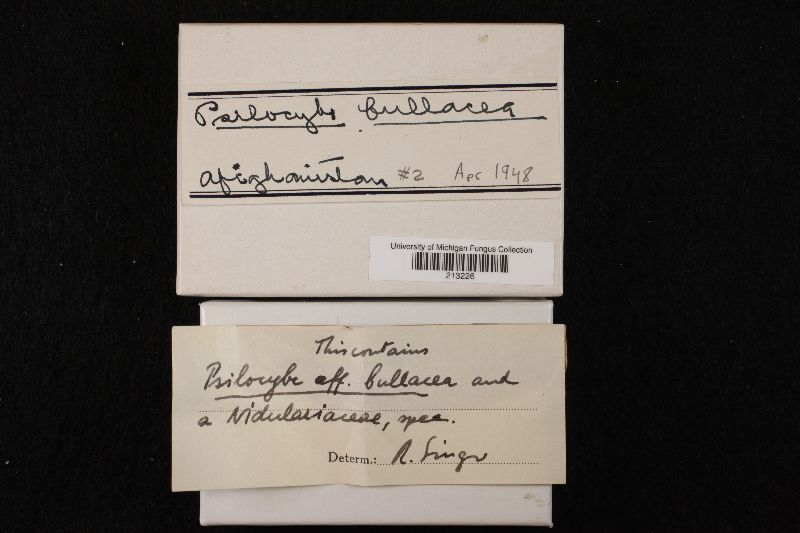 Psilocybe bullacea
Afghanistan #2 Apr 1948
University of Michigan Fungus Collection
213226
This contains
Psilocybe aff. bullacea and
a Nidulariaceae, spec.
Determ.: R. Singer